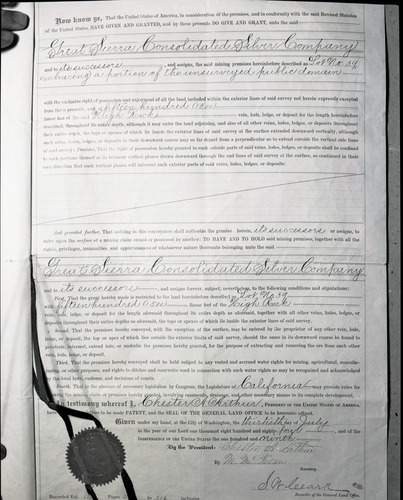 Now know ye, That the United States of America, in consideration of the premises, and in conformity with the said Revised Statutes
of the United States, HAVE GIVEN AND GRANTED, and by these presents DO GIVE AND GRANT, unto the said
Great Sierra Consolidated Silver Company
and to its successors and assigns, the said mining premises hereinbefore described as Lot No. 39,
embracing a portion of the unsurveyed public domain
with the exclusive right of possession and enjoyment of all the land included within the exterior lines of said survey not herein expressly excepted
from these presents, and of fifteen hundred
linear feet of the said High Rock vein, lode, ledge, or deposit for the length hereinbefore
described, throughout its entire depth, although it may enter the land adjoining, and also of all other veins, lodes, ledges, or deposits throughout
their entire depth, the tops or apexes of which lie inside the exterior lines of said survey at the surface extended downward vertically, although
such veins, lodes, ledges, or deposits in their downward course may so far depart from a perpendicular as to extend outside the vertical side lines
of said survey: Provided, That the right of possession hereby granted to such outside parts of said veins, lodes, ledges, or deposits shall be confined
to such portions thereof as lie between vertical planes drawn downward through the end lines of said survey, so continued in their
own direction that such vertical planes will intersect such exterior parts of said veins, lodes, ledges, or deposits:
And provided further, That nothing in this conveyance shall authorize the grantee herein, its successors or assigns, to
enter upon the surface of a mining claim owned or possessed by another: TO HAVE AND TO HOLD said mining premises, together with all the
rights, privileges, immunities, and appurtenances of whatsoever nature thereunto belonging unto the said
Great Sierra Consolidated Silver Company
and to its successors and assigns, forever, subject, nevertheless, to the following conditions and stipulations:
First. That the grant hereby made is restricted to the land hereinbefore described as Lot No. 39
fifteen hundred linear feet of the High Rock
vein, lode, ledge, or deposit for the length aforesaid throughout its entire depth as aforesaid, together with all other veins, lodes, ledges, or
deposits throughout their entire depths as aforesaid, the tops or apexes of which lie inside the exterior lines of said survey.
Second. That the premises hereby conveyed, with the exception of the surface, may be entered by the proprietor of any other vein, lode,
ledge, or deposit, the top or apex of which lies outside the exterior limits of said survey, should the same in its downward course be found to
penetrate, intersect, extend into, or underlie the premises hereby granted, for the purpose of extracting and removing the ore from such other
vein, lode, ledge, or deposit.
Third. That the premises hereby conveyed shall be held subject to any vested and accrued water rights for mining, agricultural, manufac-
turing, or other purposes, and rights to ditches and reservoirs used in connection with such water rights as may be recognized and acknowledged
by the local laws, customs, and decisions of courts.
That in the absence of necessary legislation by Congress, the Legislature of California may provide rules for
working the mining claim or premises hereby granted, involving easements, drainage, and other necessary means to its complete development.
In testimony whereof I, Chester A. Arthur, PRESIDENT OF THE UNITED STATES OF AMERICA,
have caused these letters to be made PATENT, and the SEAL OF THE GENERAL LAND OFFICE to be hereunto affixed.
Given under my hand, at the City of Washington, the thirtieth day of July
in the year of our Lord one thousand eight hundred and eighty-four and of the
INDEPENDENCE OF THE UNITED STATES the one hundred and ninth
By the President: Chester A. Arthur
By
Secretary.
S. W. Clark
Recorder of the General Land Office.
Recorded Vol.